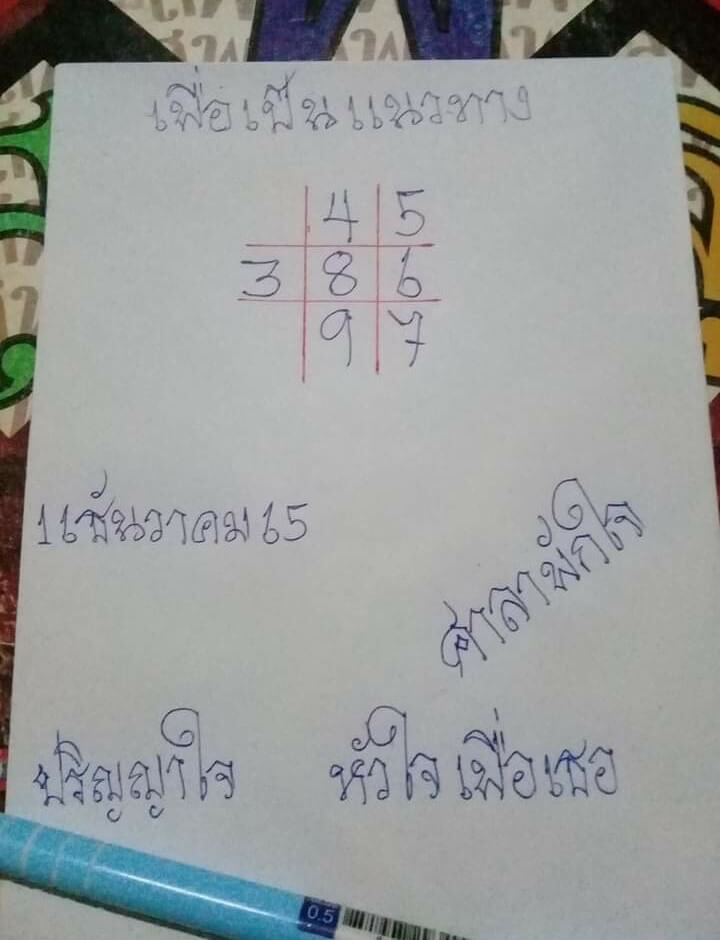 เพื่อเป็นแนวทาง
4 5
3 8 6
9 7
1 เธันวาคม 65
ศาลาพักใจ
ปริญญาใจ หัวใจเพื่อเธอ
0.5